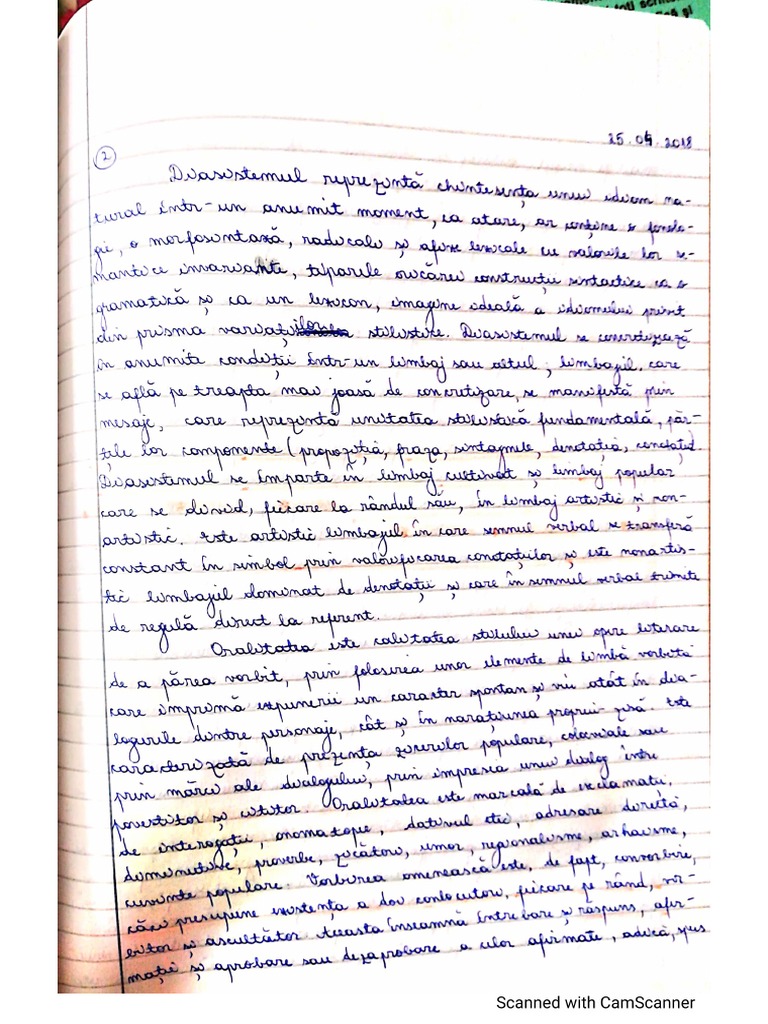 25.04.2018
2
Diasistemul reprezintă chintesența unui idiom na-
tural într-un anumit moment, ca atare, ar conține o fonolo-
gie, o morfosintaxă, radicale și afixe lexicale cu valorile lor se-
mantice invariante, tiparile oricărei construcții sintactice ca o
gramatică și ca un lexicon, imagine ideală a idiomului privit
din prisma variațiilor stilistice. Diasistemul se concretizează
în anumite condiții într-un limbaj sau altul; limbajil care
se află pe treapta mai joasă de concretizare, se manifestă prin
mesaje, care reprezintă unitatea stilistică fundamentală, păr-
țile lor componente (propoziția, fraza, sintagmele, denotația, conotația).
Diasistemul se împarte în limbaj cultivat și limbaj popular
care se divid, fiecare la rândul său, în limbaj artistic și non-
artistic. Este artistic limbajul în care semnul verbal se transferă
constant în simbol prin valorificarea conotațiilor și este nonartis-
tic limbajul dominat de denotații și care în semnul verbal trimite
de regulă direct la referent.
Oralitatea este calitatea stilului unei opere literare
de a părea vorbit, prin folosirea unor elemente de limbă vorbită
care imprimă expunerii un caracter spontan și viu atât în dia-
logurile dintre personaje, cât și în narațiunea propriu-zisă. Este
caracterizată de prezența zicerilor populare, colocviale sau
prin mărci ale dialogului, prin impresia unui dialog între
povestitor și cititor. Oralitatea este marcată de exclamații,
de interogații, onomatopie, dativul etic, adresare directă,
diminutive, proverbe, zicători, umor, regionalisme, arhaisme,
cuvinte populare. Vorbirea omenească este, de fapt, convorbire,
căci presupune existența a doi conlocutori, fiecare pe rând, vor-
bitor și ascultător. Aceasta înseamnă întrebare și răspuns, afir-
mație și aprobare sau dezaprobare a celor afirmate, adică, spus
Scanned with CamScanner